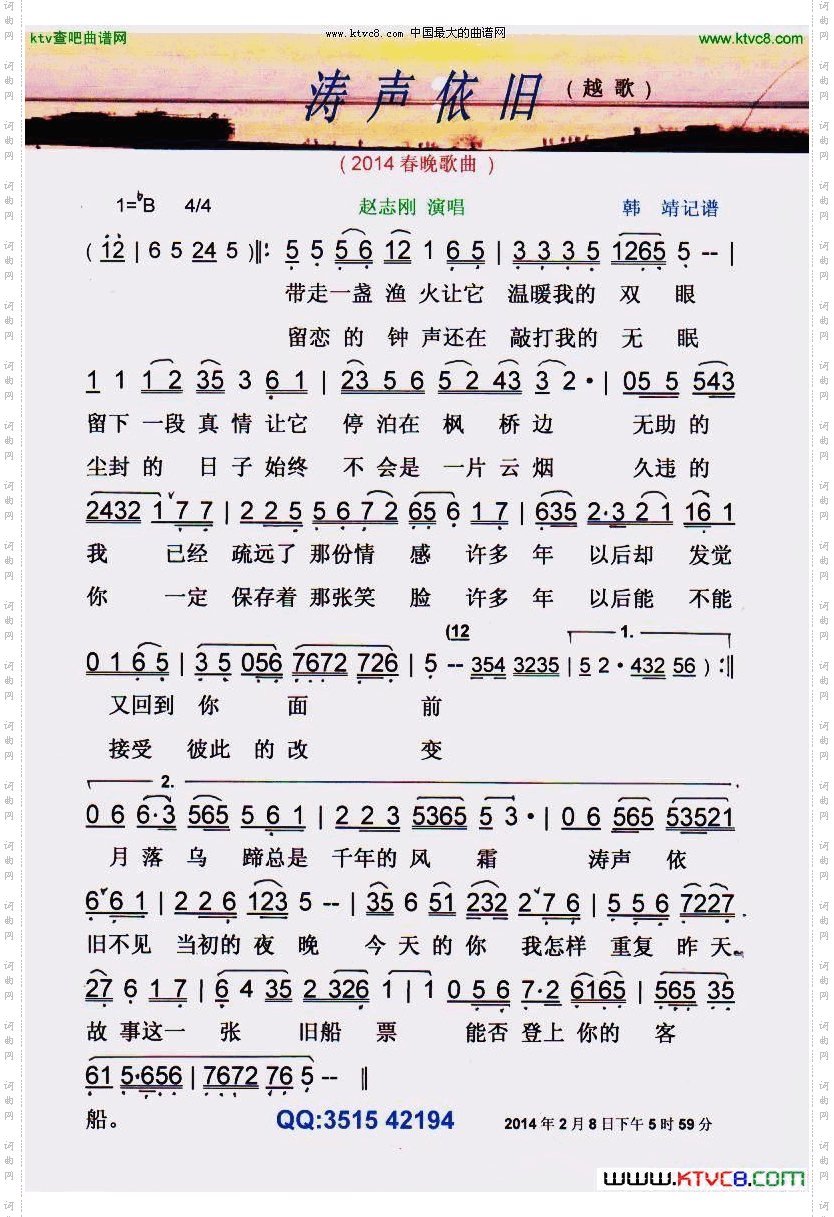 www.ktvc8.com 中国最大的曲谱网
ktv查吧曲谱网 www.ktvc8.com
涛声依旧 (越歌)
(2014春晚歌曲)
1=♭B 4/4 赵志刚 演唱 韩 靖记谱
(12 | 6 5 24 5 )‖: 5 5 5 6 12 1 6 5 | 3 3 3 5 1265 5 -- |
带走一盏 渔 火让它 温暖我的 双 眼
留恋 的 钟 声还在 敲打我的 无 眠
1 1 12 35 3 6 1 | 23 5 6 5 2 43 3 2· | 05 5 543
留下 一段 真 情 让它 停 泊在 枫 桥 边 无助 的
尘封 的 日 子 始终 不 会是 一片 云 烟 久违 的
2432 1 7 7 | 2 2 5 5 6 7 2 65 6 1 7 | 635 2·3 2 1 16 1
我 已经 疏远了 那份情 感 许多 年 以后却 发觉
你 一定 保存着 那张笑 脸 许多 年 以后能 不能
(12 1.
0 1 6 5 | 3 5 056 7672 726 | 5 -- 354 3235 | 5 2·432 56 ) :‖
又回到 你 面 前
接受 彼此 的 改 变
2.
0 6 6·3 565 5 6 1 | 2 2 3 5365 5 3· | 0 6 565 53521
月 落 乌 蹄总是 千年的 风 霜 涛声 依
6 6 1 | 2 2 6 123 5 -- | 35 6 51 232 2 7 6 | 5 5 6 7227
旧不见 当初的 夜 晚 今 天 的 你 我怎样 重复 昨 天
27 6 1 7 | 6 4 35 2 326 1 | 1 0 5 6 7·2 6165 | 565 35
故 事这一 张 旧船 票 能否 登上 你的 客
61 5·656 | 7672 76 5 -- ‖
船。 QQ:3515 42194 2014 年 2 月 8 日下午 5 时 59 分
www.KTVC8.com